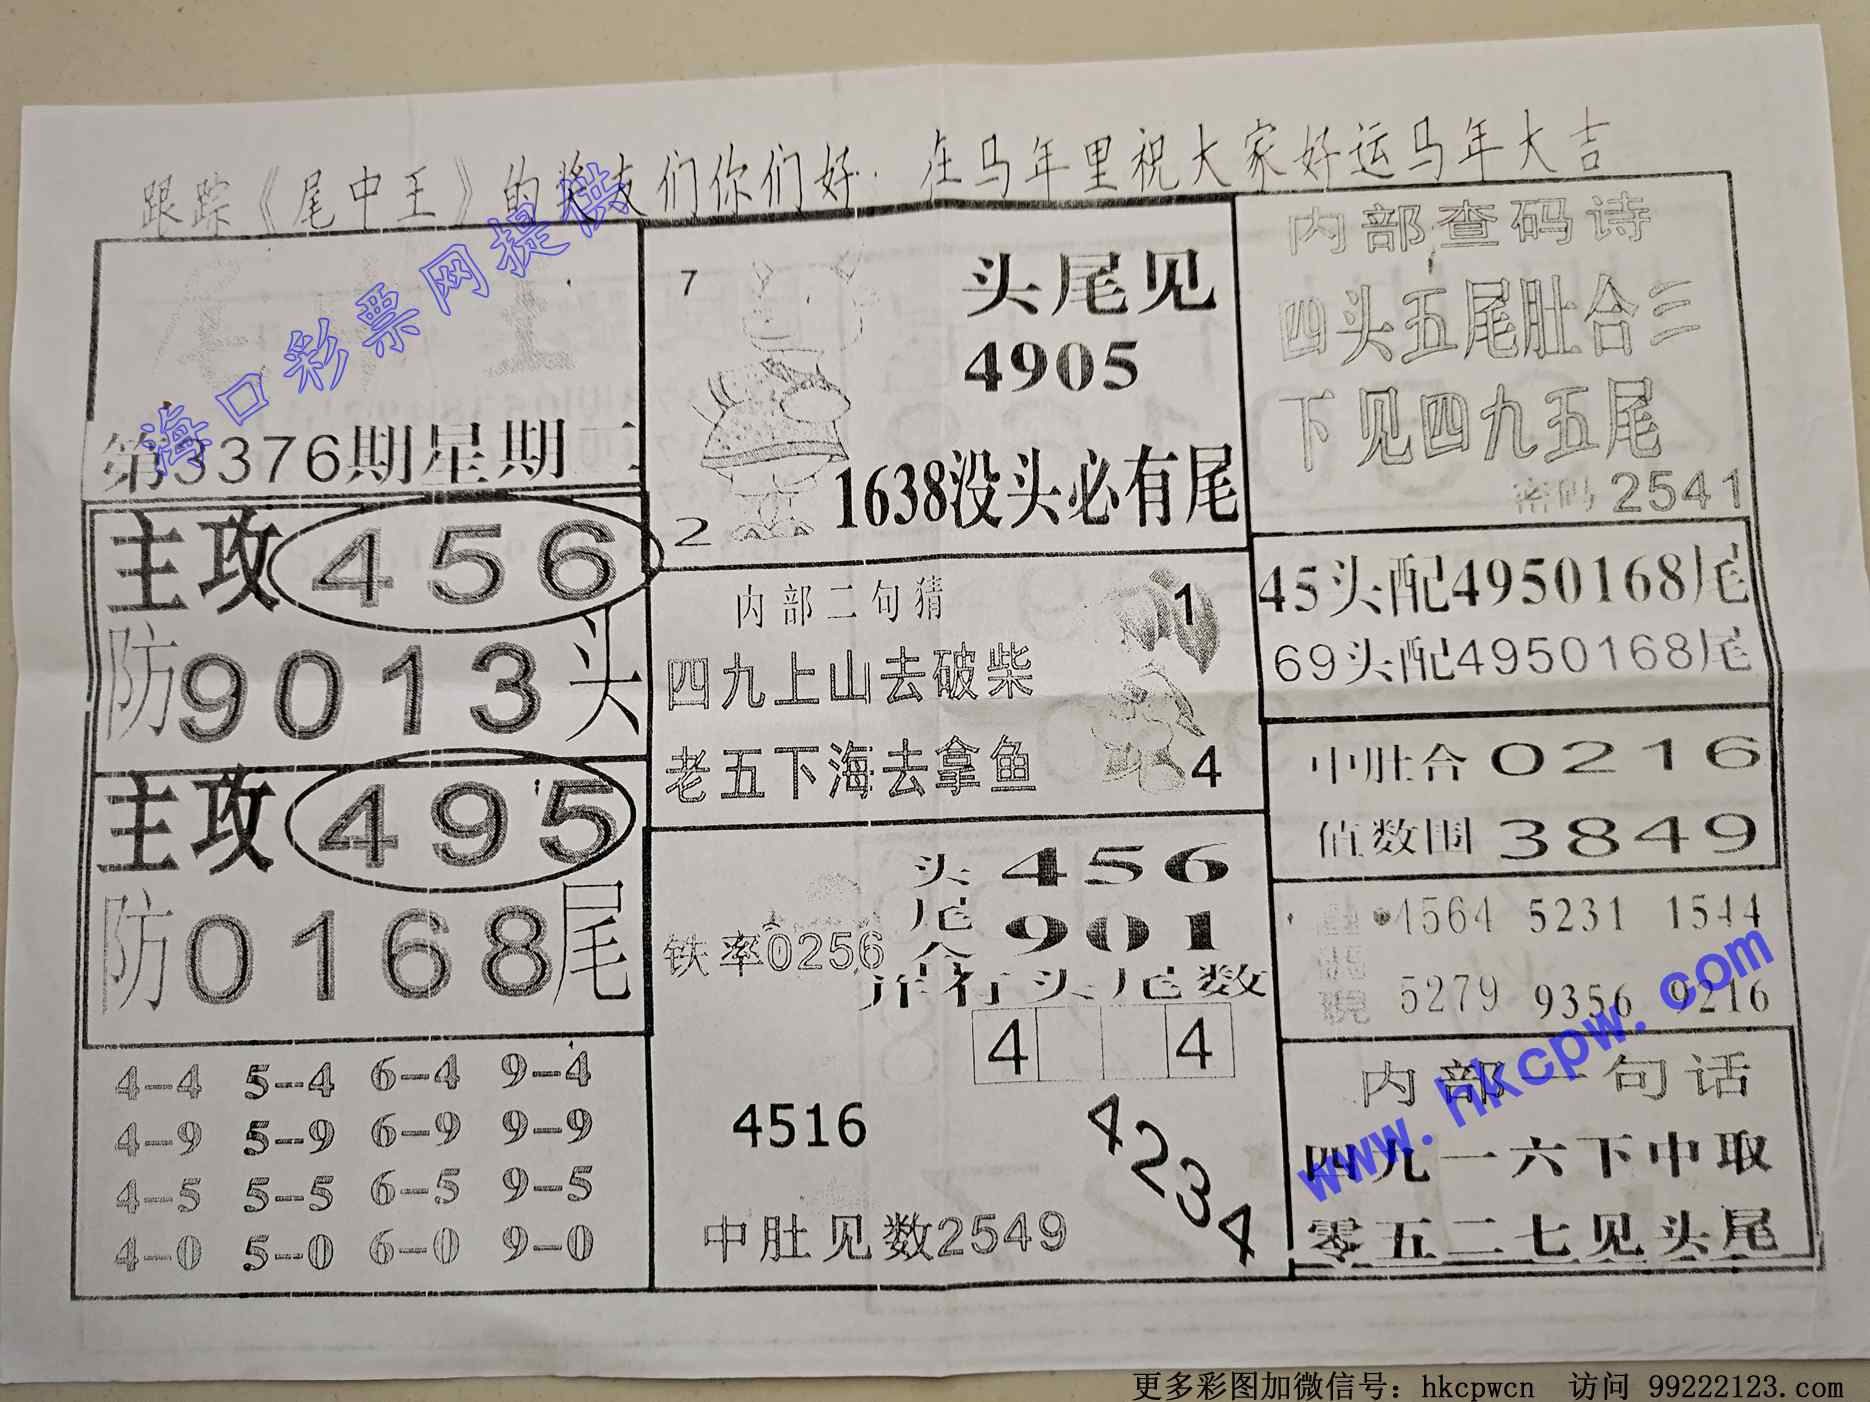 跟踪《尾中王》的彩友们你们好．在马年里祝大家好运马年大吉
海口彩票网提供
第3376期星期二
主攻456
防9013头
主攻495
防0168尾
4--4 5--4 6--4 9--4
4--9 5--9 6--9 9--9
4--5 5--5 6--5 9--5
4--0 5--0 6--0 9--0
7
头尾见
4905
1638没头必有尾
2
内部二句猜
1
四九上山去破柴
老五下海去拿鱼
4
头456
尾901
合
铁率0256
并行头尾数
4 4
4516
4234
中肚见数2549
内部查码诗
四头五尾肚合三
下见四九五尾
密码2541
45头配4950168尾
69头配4950168尾
中肚合0216
值数围3849
4564 5231 1544
5279 9356 9216
www.hkcpw.com
内部一句话
四九一六下中取
零五二七见头尾
更多彩图加微信号：hkcpwcn 访问 99222123.com